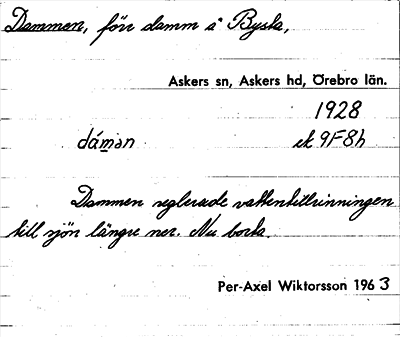 Dammen, förr damm i Bysta,
Askers sn, Askers hd, Örebro län.
1928
dám̲ən ek 9F8h
Dammen reglerade vattentillrinningen
till sjön längre ner. Nu borta.
Per-Axel Wiktorsson 1963